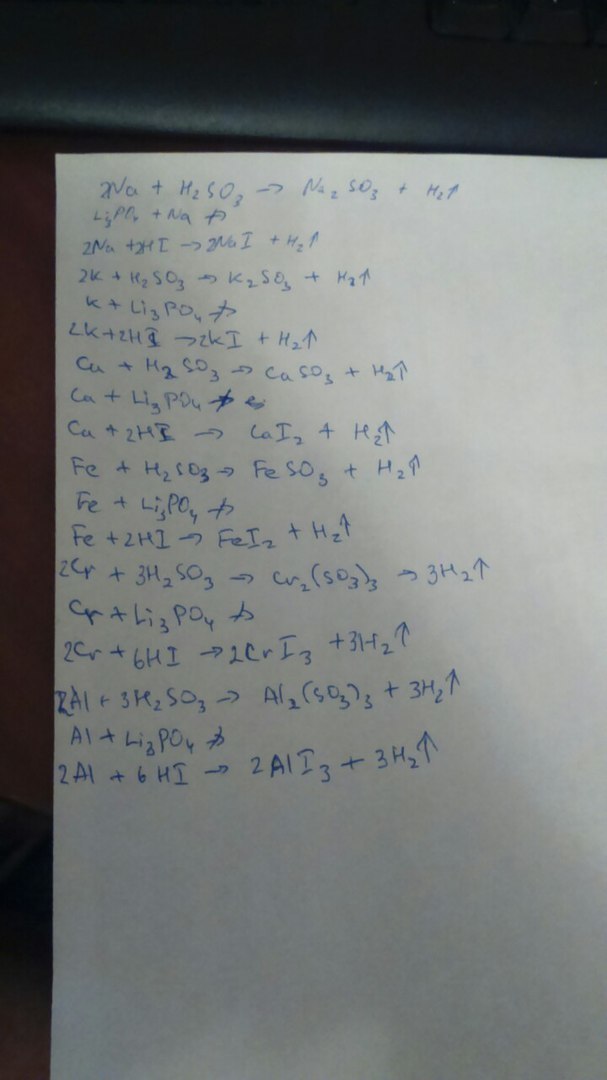 2Na + H₂SO₃ → Na₂SO₃ + H₂↑
Li₃PO₄ + Na ↛
2Na + 2HI → 2NaI + H₂↑
2K + H₂SO₃ → K₂SO₃ + H₂↑
K + Li₃PO₄ ↛
2K + 2HI → 2KI + H₂↑
Ca + H₂SO₃ → CaSO₃ + H₂↑
Ca + Li₃PO₄ ↛
Ca + 2HI → CaI₂ + H₂↑
Fe + H₂SO₃ → FeSO₃ + H₂↑
Fe + Li₃PO₄ ↛
Fe + 2HI → FeI₂ + H₂↑
2Cr + 3H₂SO₃ → Cr₂(SO₃)₃ → 3H₂↑
Cr + Li₃PO₄ ↛
2Cr + 6HI → 2CrI₃ + 3H₂↑
2Al + 3H₂SO₃ → Al₂(SO₃)₃ + 3H₂↑
Al + Li₃PO₄ ↛
2Al + 6HI → 2AlI₃ + 3H₂↑